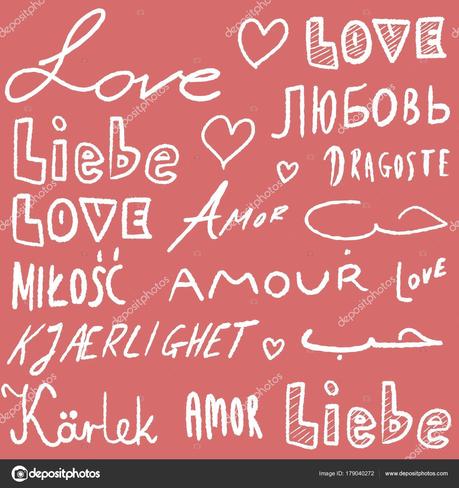 Love
LOVE
ЛЮБОВЬ
Liebe
DRAGOSTE
LOVE
AMOR
حب
MIŁOŚĆ
AMOUR
LOVE
KJÆRLIGHET
حب
Kärlek
AMOR
Liebe
depositphotos
Image ID: 179040272
www.depositphotos.com